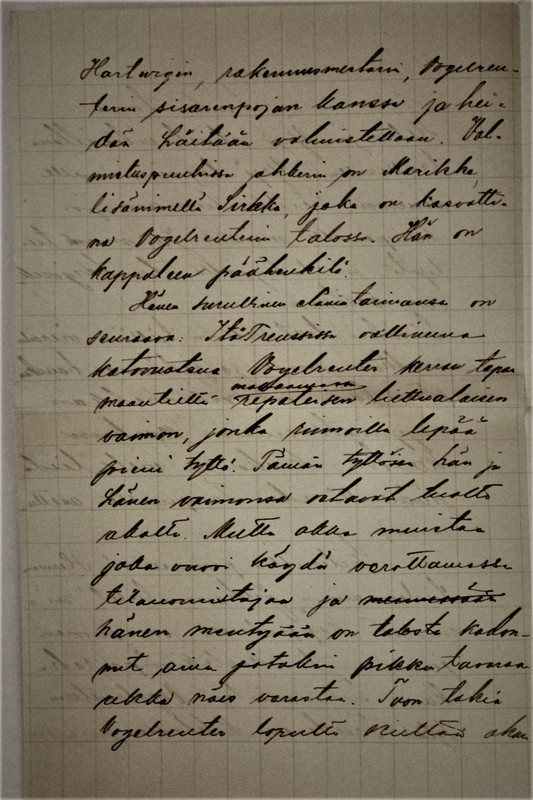 Hartwigin, rakennusmestarin, Vogelreu-
terin sisarenpojan kanssa ja hei-
dän häitään valmistellaan. Val-
mistuspuuhissa ahkerin on Marikka,
lisänimeltä Sirkka, joka on kasvatti-
na Vogelreuterin talossa. Hän on
kappaleen päähenkilö.
Hänen surullinen elämäntarinansa on
seuraava: ItäPreussissa vallinneena
katovuotena Vogelreuter kerran tapaa
maantieltä repaleisen liettualaisen
vaimon, jonka rinnoilla lepää
pieni tyttö. Tämän tyttösen hän ja
hänen vaimonsa ostavat tuolta
akalta. Mutta akka muistaa
joka vuosi käydä verottamassa
tilanomistajaa ja
hänen mentyään on talosta kadon-
nut aina jotakin pikku tavaraa
akka näes varastaa. Tuon takia
Vogelreuter lopulta kieltää akan